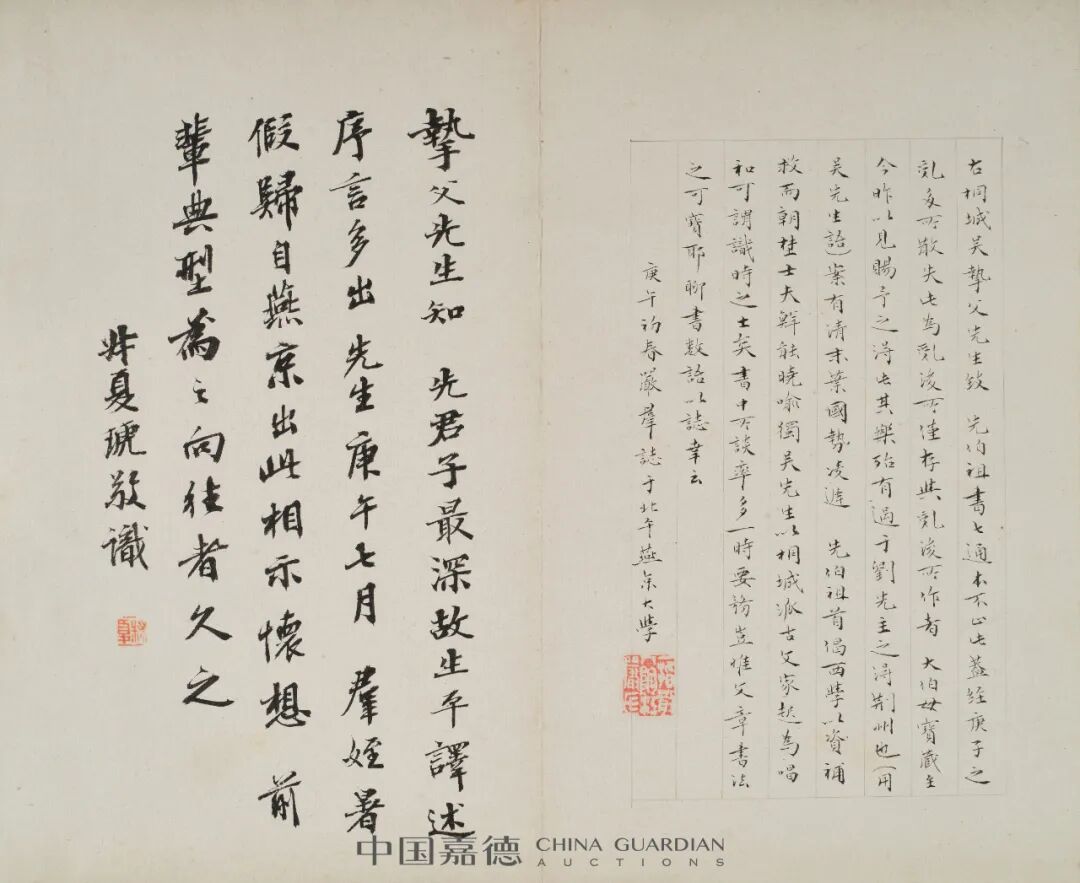 右桐城吴摯父先生致 先伯祖書七通本不止此蓋經庚子之
乱多所散失此為乱後所僅存與乱後所作者 大伯母寶藏至
今昨以見賜予之得此其樂殆有過于劉先主之得荆州也(用
吴先生語)案有清末葉國勢凌遅 先伯祖首倡西學以資補
救而朝桂士夫鮮能曉喻獨吴先生以桐城派古文家起為唱
和可謂識時之士矣書中所談率多一時要務豈惟文章書法
之可寶耶聊書數語以誌幸云
庚午初春嚴羣誌于北平燕京大學
摯父先生知 先君子最深故生平譯述
序言多出 先生庚午七月 羣姪暑
假歸自燕京出此相示懷想 前
輩典型為之向往者久之
叔夏琥敬識
中国嘉德 CHINA GUARDIAN
AUCTIONS